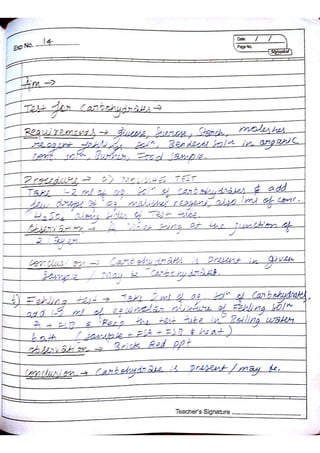 Exp No. 14
Date / /
Page No.
Aim →
Test for Carbohydrates →
Requirements → Glucose, Sucrose, Starch, molisches
reagent fehling soln, Benedicts soln in organic
conc. Burner, Food Sample.
Procedure → a) MOLISCHES TEST
Take 1-2 ml of aq. soln of carbohydrates & add
few drops of molisches reagent, also 1ml of conc.
H2SO4 along sides of Test tube.
Observation → A violet ring at the junction of
2 layer
Conclusion → Carbohydrates is present in given
sample / may be carbohydrates.
Fehling test → Take 2ml of aq soln of carbohydrates
add 1-2 ml of equimolar mixture of Fehling soln
& Keep the test tube in Boiling water
bath (sample + FSA + FSB & heat)
Observation → Brick Red ppt
Conclusion → Carbohydrate is present / may be.
Teacher's Signature